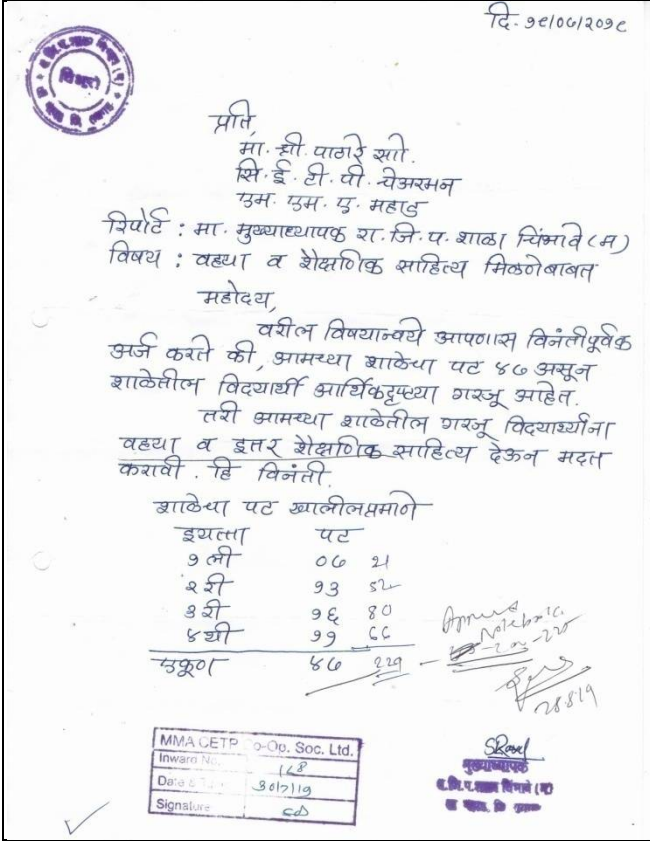 दि. १९/०७/२०१९
प्रति,
मा. श्री. पाठारे सो.
सि. ई. टी. पी. चेअरमन
एम. एम. ए. महाड
रिपोर्ट : मा. मुख्याध्यापक रा. जि. प. शाळा चिंभावे (म)
विषय : वहया व शैक्षणिक साहित्य मिळणेबाबत
महोदय,
वरील विषयान्वये आपणास विनंतीपूर्वक
अर्ज करते की, आमच्या शाळेचा पट ४७ असून
शाळेतील विदयार्थी आर्थिकदृष्ट्या गरजू आहेत.
तरी आमच्या शाळेतील गरजू विदयार्थ्यांना
वहया व इतर शैक्षणिक साहित्य देऊन मदत
करावी. हि विनंती.
शाळेचा पट खालीलप्रमाणे
इयत्ता पट
१ ली ०७ 21
२ री १३ 52
३ री १६ 80
४ थी ११ 66
एकूण ४७ 219
28.8.19
MMA CETP Co-Op. Soc. Ltd.
Inward No.
Date & 30/7/19
Signature
मुख्याध्यापक